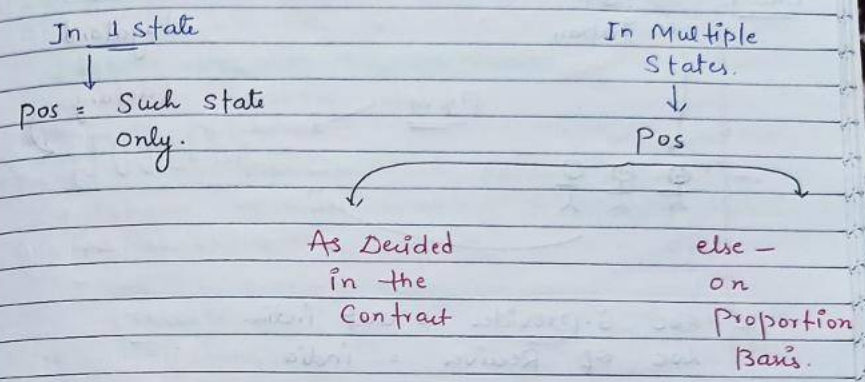 In 1 state
pos = Such state
only.
In Multiple
States.
Pos
As Decided
in the
Contract
else –
on
Proportion
Basis.